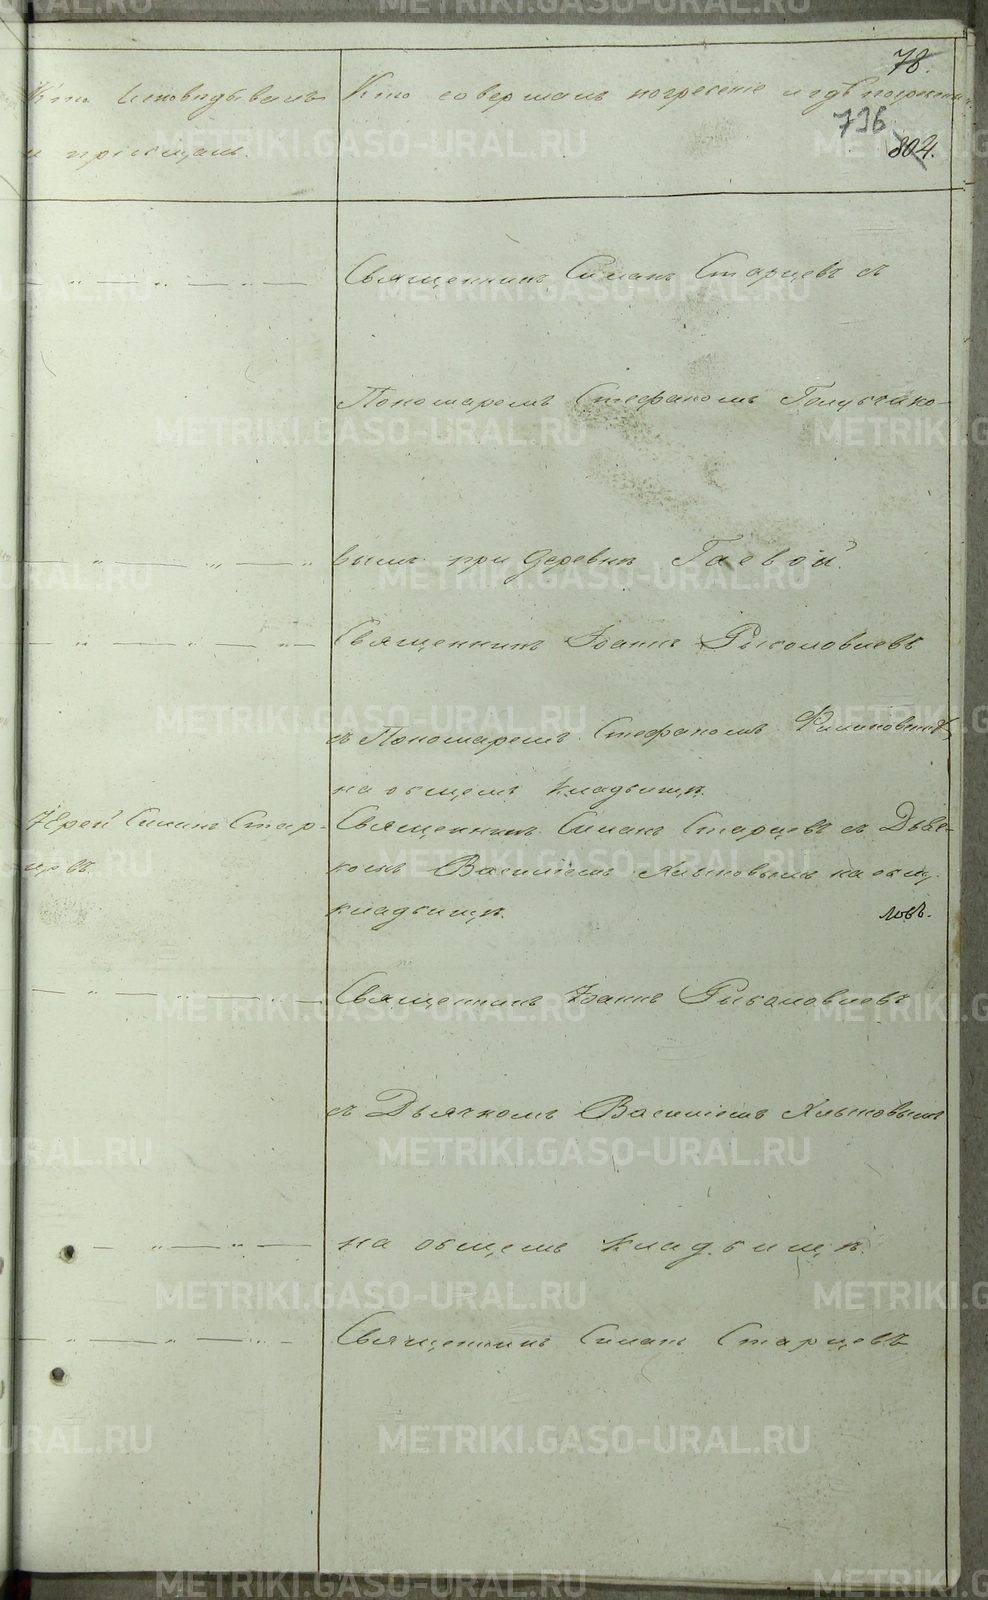 78.
Кто исповѣдывалъ
и пріобщалъ.
Кто совершалъ погребеніе и гдѣ погребены.
736
802.
Священникъ Симонъ Старцевъ съ
Пономаремъ Стефаномъ
вымъ при деревнѣ Гаевой.
Священникъ Іоаннъ Рыболовлевъ
съ Пономаремъ Стефаномъ
на общемъ кладбищѣ.
Іерей Симонъ Стар-
цевъ.
Священникъ Симонъ Старцевъ съ Дьяч-
комъ Василіемъ Хлыновымъ на общ.
кладбищѣ.
ловъ.
Священникъ Іоаннъ Рыболовлевъ
съ Дьячкомъ Василіемъ Хлыновымъ
на общемъ кладбищѣ.
Священникъ Симонъ Старцевъ
METRIKI.GASO-URAL.RU